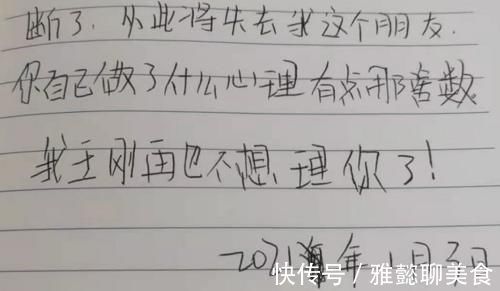 断了.从此将失去我这个朋友.
你自己做了什么心理有点那啥数
我王刚再也不想理你了!
2021年1月3日
快传号/雅懿聊美食